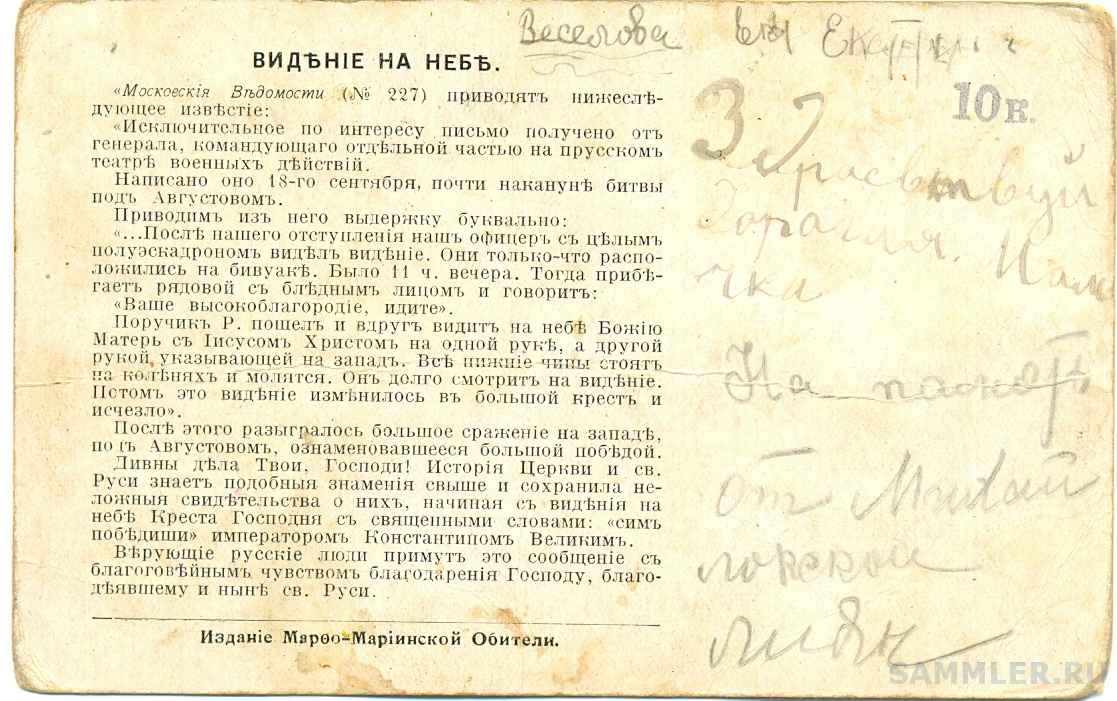 ВИДѢНІЕ НА НЕБѢ.
«Московскія Вѣдомости (№ 227) приводятъ нижеслѣ-
дующее извѣстіе:
«Исключительное по интересу письмо получено отъ
генерала, командующаго отдѣльной частью на прусскомъ
театрѣ военныхъ дѣйствій.
Написано оно 18-го сентября, почти наканунѣ битвы
подъ Августовомъ.
Приводимъ изъ него выдержку буквально:
«...Послѣ нашего отступленія нашъ офицеръ съ цѣлымъ
полуэскадрономъ видѣлъ видѣніе. Они только-что распо-
ложились на бивуакѣ. Было 11 ч. вечера. Тогда прибѣ-
гаетъ рядовой съ блѣднымъ лицомъ и говоритъ:
«Ваше высокоблагородіе, идите».
Поручикъ Р. пошелъ и вдругъ видитъ на небѣ Божію
Матерь съ Іисусомъ Христомъ на одной рукѣ, а другой
рукой указывающей на западъ. Всѣ нижніе чины стоятъ
на колѣняхъ и молятся. Онъ долго смотритъ на видѣніе.
Потомъ это видѣніе измѣнилось въ большой крестъ и
исчезло».
Послѣ этого разыгралось большое сраженіе на западѣ,
подъ Августовомъ, ознаменовавшееся большой побѣдой.
Дивны дѣла Твои, Господи! Исторія Церкви и св.
Руси знаетъ подобныя знаменія свыше и сохранила не-
ложныя свидѣтельства о нихъ, начиная съ видѣнія на
небѣ Креста Господня съ священными словами: «симъ
побѣдиши» императоромъ Константиномъ Великимъ.
Вѣрующіе русскіе люди примутъ это сообщеніе съ
благоговѣйнымъ чувствомъ благодаренія Господу, благо-
дѣявшему и нынѣ св. Руси.
Изданіе Марѳо-Маріинской Обители.
Веселова
10к.
З
дорагая
чка
На
от
SAMMLER.RU